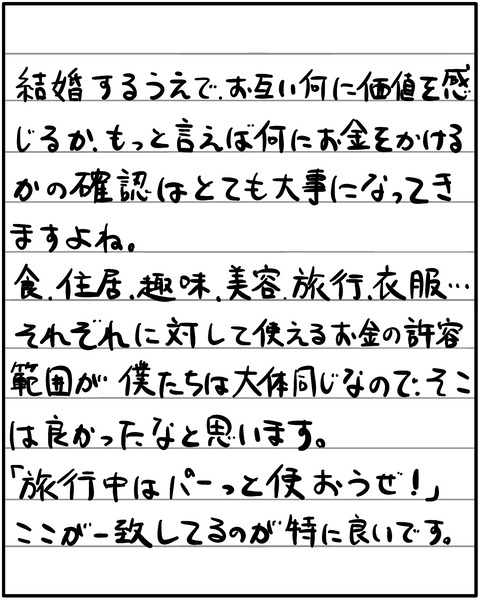 結婚するうえで、お互い何に価値を感
じるか、もっと言えば何にお金をかける
かの確認はとても大事になってき
ますよね。
食、住居、趣味、美容、旅行、衣服…
それぞれに対して使えるお金の許容
範囲が僕たちは大体同じなので、そこ
は良かったなと思います。
「旅行中はパーっと使おうぜ！」
ここが一致してるのが特に良いです。